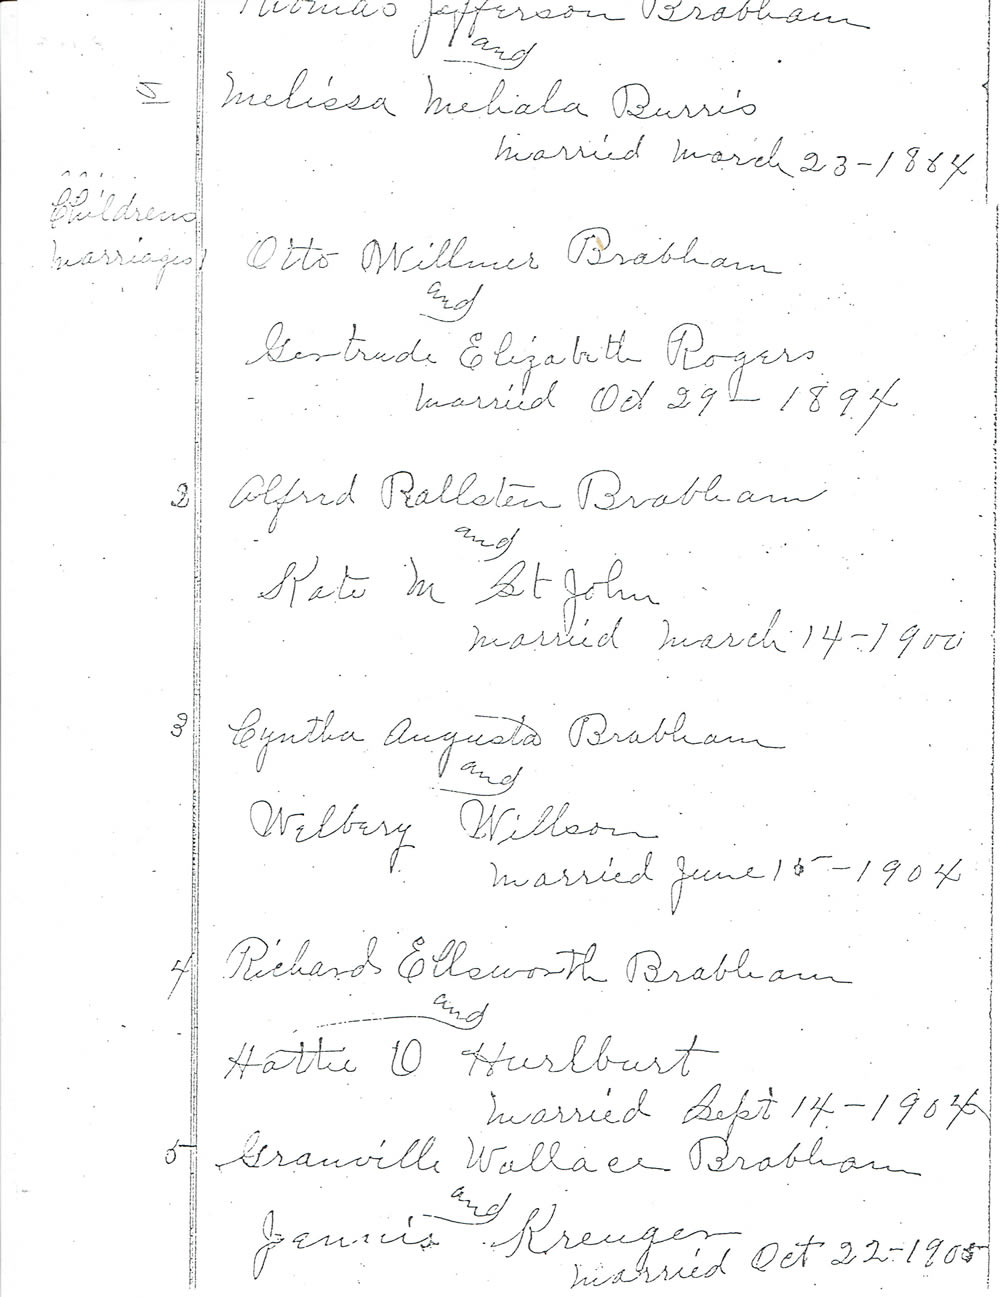 Thomas Jefferson Brabham
and
5 Melissa Mehala Burris
Married March 23-1864
Childrens
Marriages
1 Otto Willmer Brabham
and
Gertrude Elizabeth Rogers
Married Oct 29-1894
2 Alfred Rallsten Brabham
and
Kate M St John
Married March 14-1900
3 Cyntha Augusta Brabham
and
Welbery Willson
Married June 15-1904
4 Richard Ellsworth Brabham
and
Hattie O Hurlburt
Married Sept 14-1904
5 Granville Wallace Brabham
and
Jennie Kreuger
Married Oct 22-1905